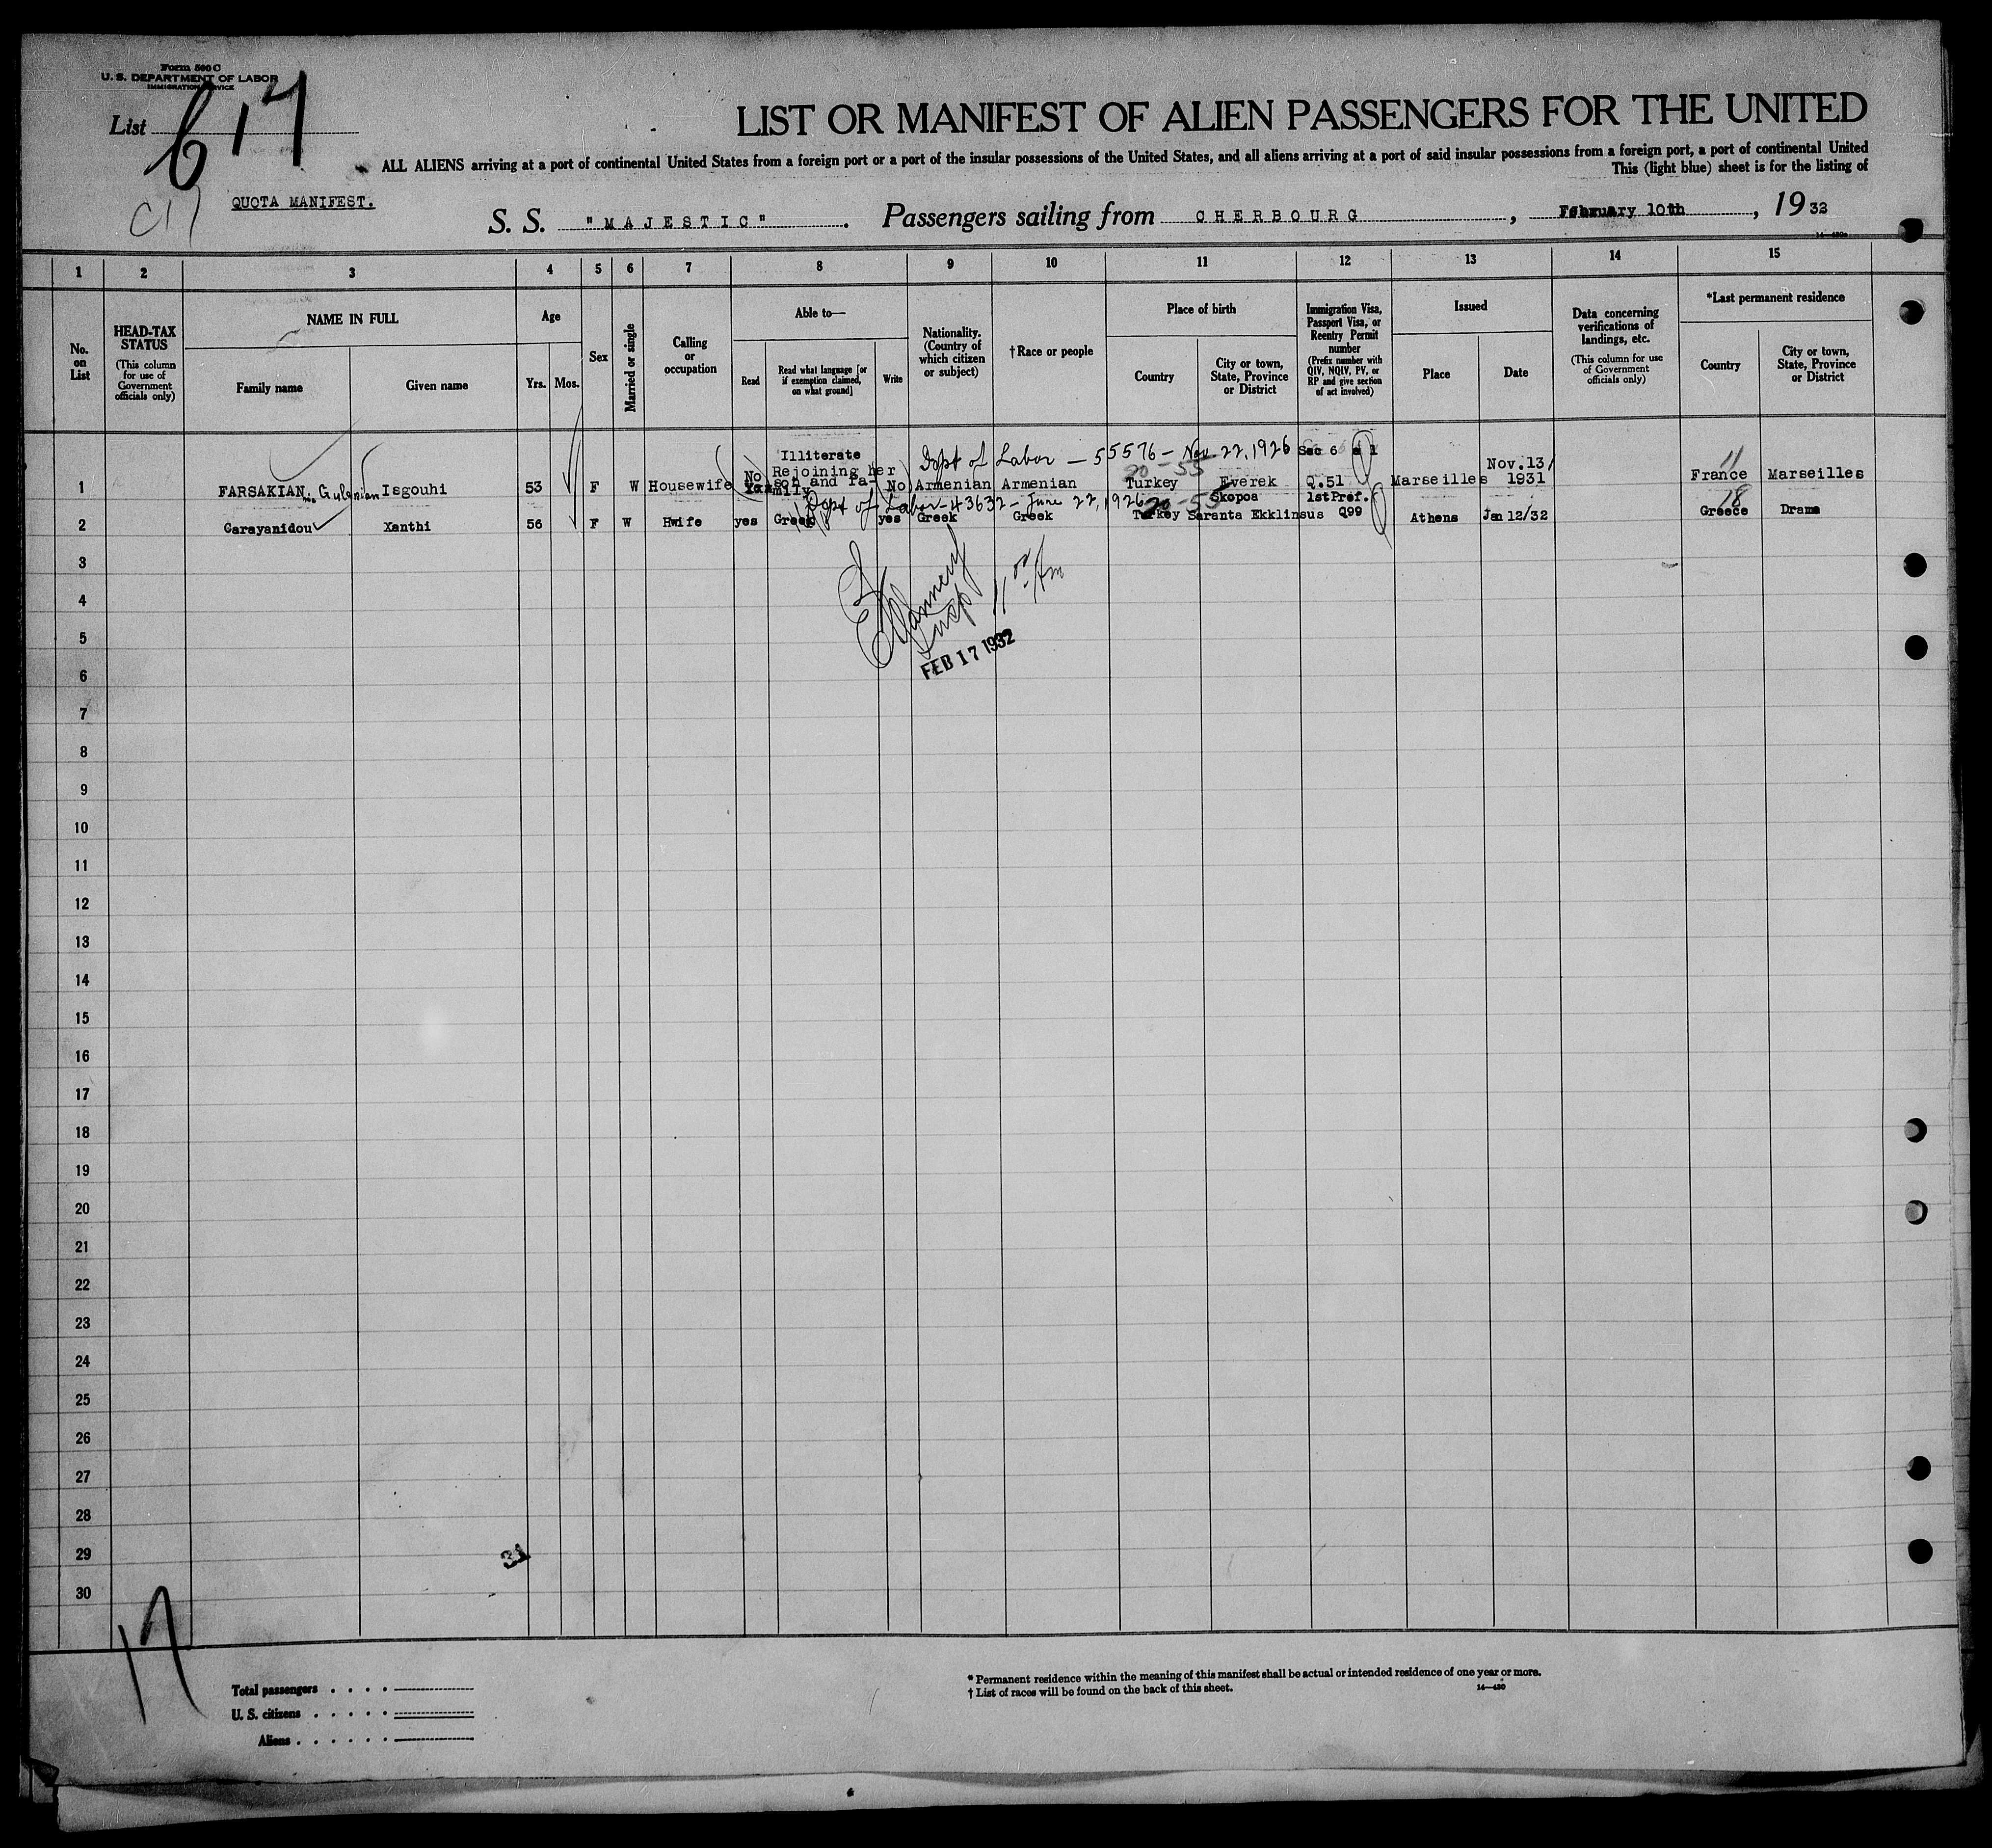 Form 500 C
U. S. DEPARTMENT OF LABOR
IMMIGRATION SERVICE
List 617
QUOTA MANIFEST.
LIST OR MANIFEST OF ALIEN PASSENGERS FOR THE UNITED
ALL ALIENS arriving at a port of continental United States from a foreign port or a port of the insular possessions of the United States, and all aliens arriving at a port of said insular possessions from a foreign port, a port of continental United
This (light blue) sheet is for the listing of
S. S. "MAJESTIC". Passengers sailing from CHERBOURG, February 10th, 1932
1 2 3 4 5 6 7 8 9 10 11 12 13 14 15
No. on List
HEAD-TAX STATUS (This column for use of Government officials only)
NAME IN FULL
Family name
Given name
Age
Yrs.
Mos.
Sex
Married or single
Calling or occupation
Able to—
Read
Read what language [or if exemption claimed, on what ground]
Write
Nationality. (Country of which citizen or subject)
† Race or people
Place of birth
Country
City or town, State, Province or District
Immigration Visa, Passport Visa, or Reentry Permit number (Prefix number with QIV, NQIV, PV, or RP and give section of act involved)
Issued
Place
Date
Data concerning verifications of landings, etc. (This column for use of Government officials only)
*Last permanent residence
Country
City or town, State, Province or District
Dept of Labor - 55576 - Nov. 22, 1926
1 FARSAKIAN Isgouhi 53 F W Housewife No Illiterate Rejoining her son and family No Armenian Armenian 20-55 Turkey Everek Sec 6 a 1 Q.51 Marseilles Nov.13/1931 11 France Marseilles
Dept of Labor - 43632 - June 22, 1926
2 Garayanidou Xanthi 56 F W Hwife yes Greek yes Greek Greek 20-55 Turkey Skopoa Saranta Ekklinsus 1st Pref. Q99 Athens Jan 12/32 18 Greece Drama
Insp
11 00 Am
FEB 17 1932
3
4
5
6
7
8
9
10
11
12
13
14
15
16
17
18
19
20
21
22
23
24
25
26
27
28
29
30
17
Total passengers
U. S. citizens
Aliens
* Permanent residence within the meaning of this manifest shall be actual or intended residence of one year or more.
† List of races will be found on the back of this sheet.
14—430